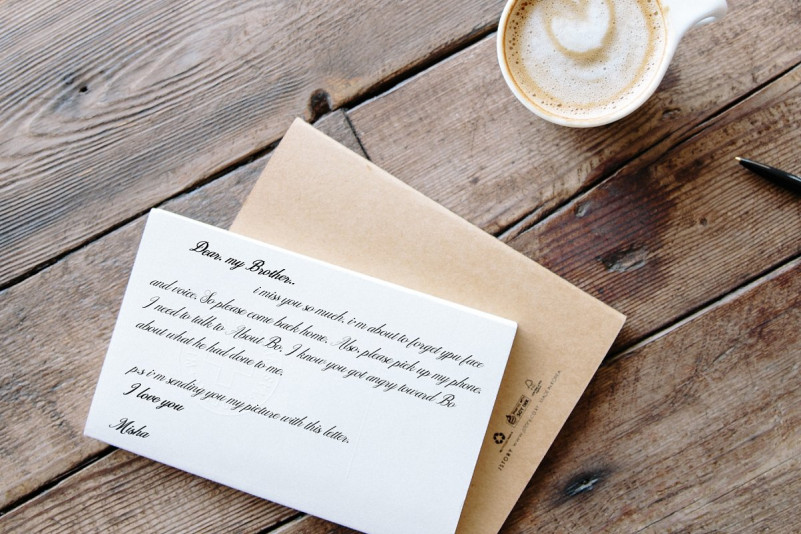 Dear, my Brother..
i miss you so much, i'm about to forget you face
and voice. So please come back home. Also, please pick up my phone.
I need to talk to About Bo. I know you got angry toward Bo
about what he had done to me.
p.s i'm sending you my picture with this letter.
I love you
Misha
SOY INK
ISTORY